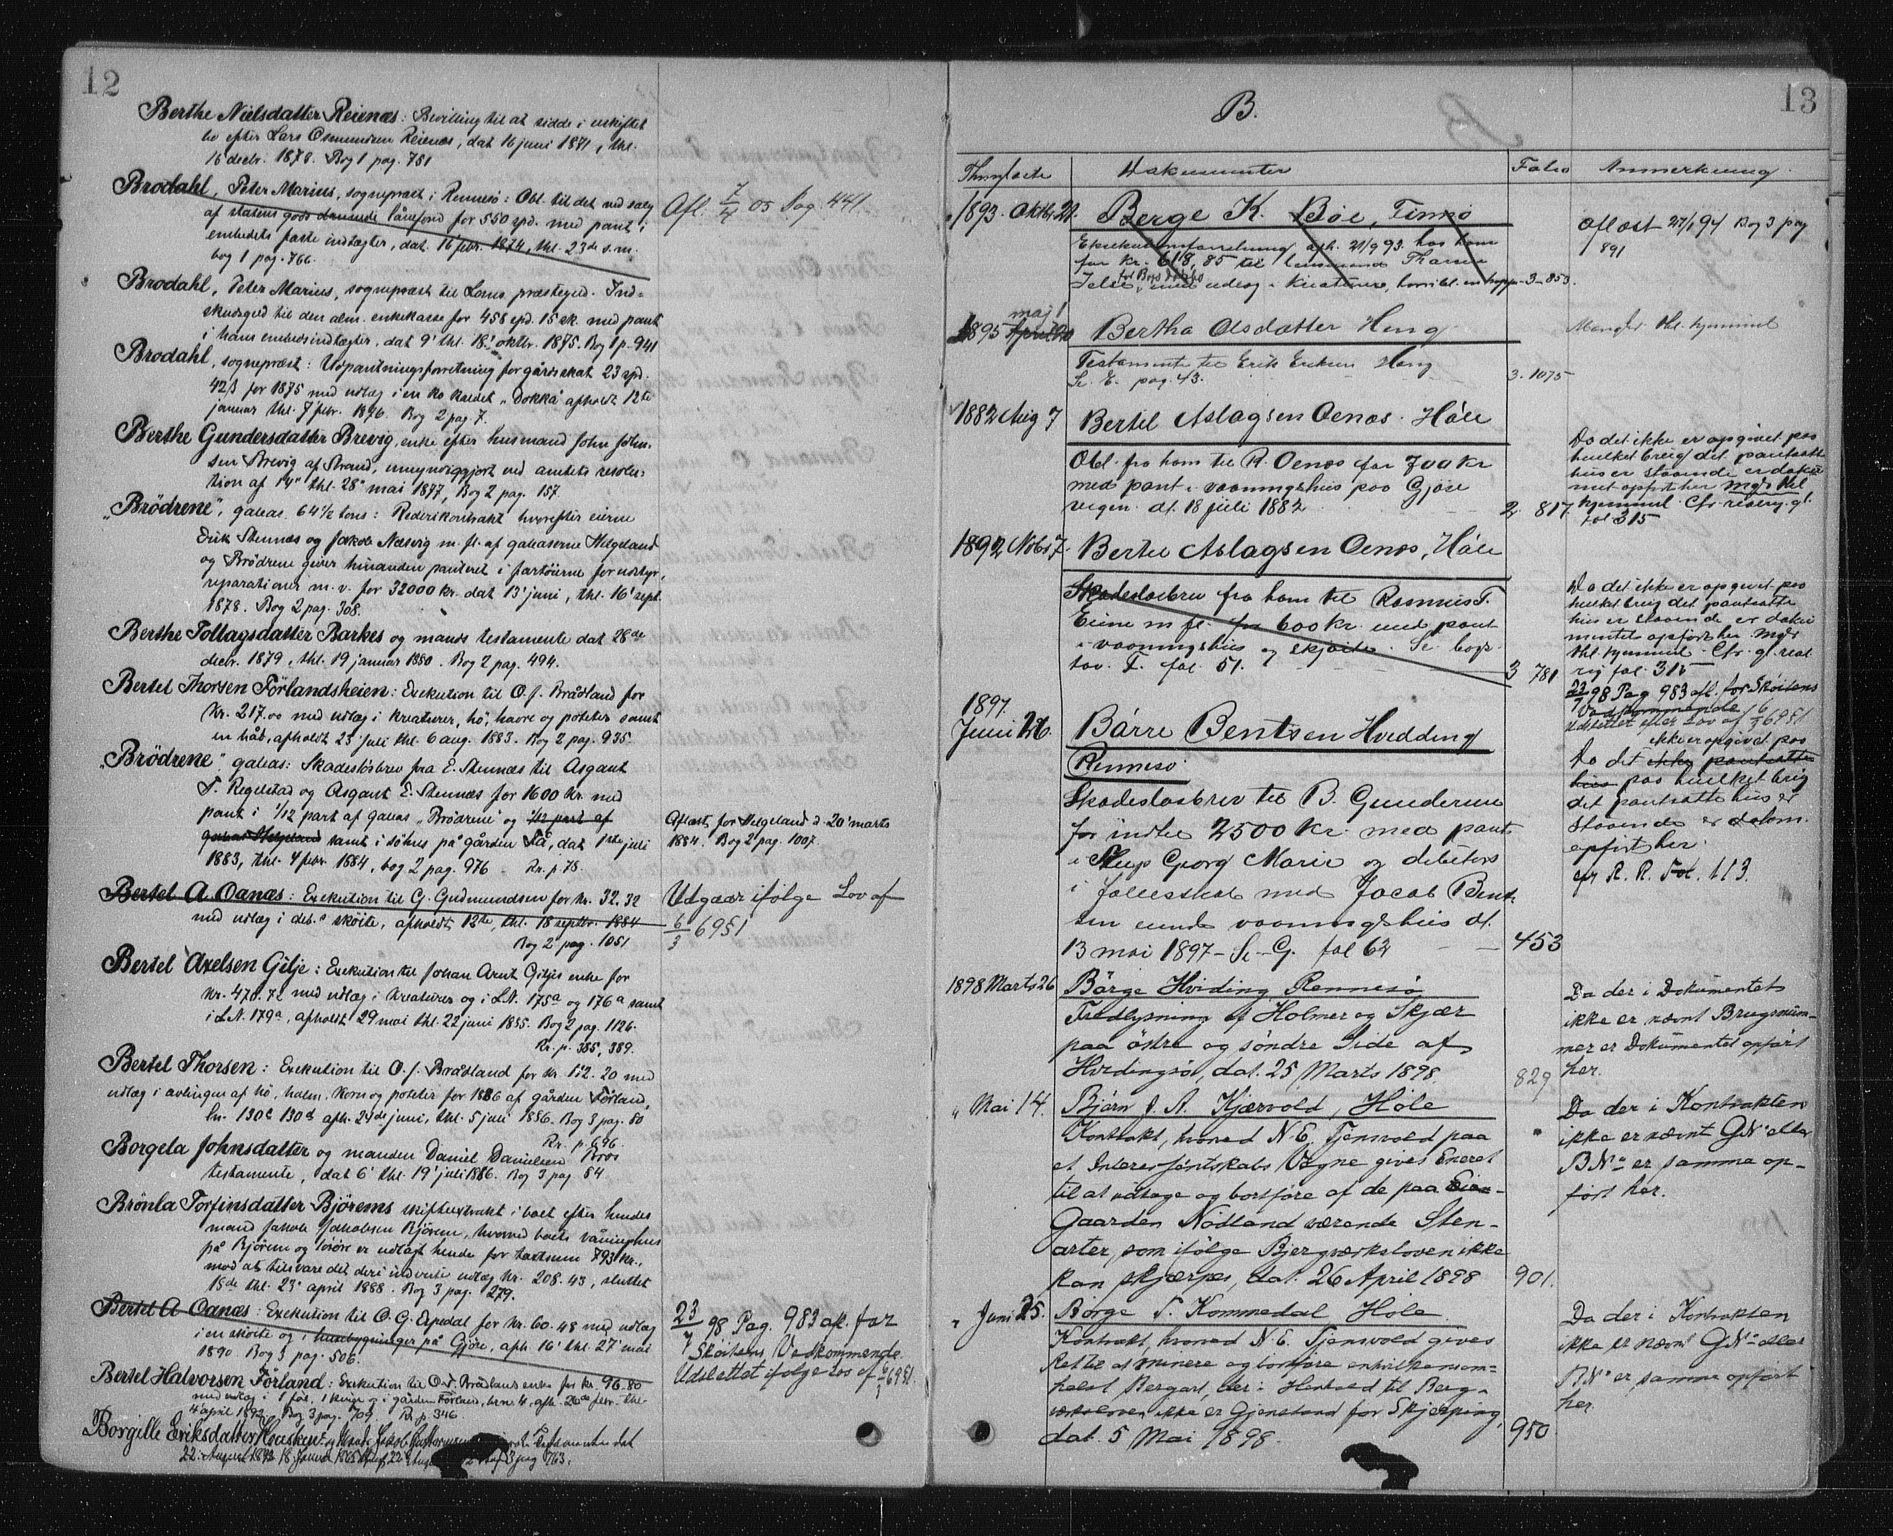 12
Berthe Nielsdatter Reienæs: Bevilling til at sidde i uskiftet
bo efter Lars Osmundsen Reienæs, dat 16 juni 1871, thl.
16 decbr. 1878. Bog 1 pag. 781
Brodahl, Peter Marius, sognepræst i Rennesø: Obl. til det ved salg
af statens gods lånefond for 550 spd. med pant i
embedets faste indtægter, dat. 16 febr. 1874, thl. 23de s.m.
bog 1 pag. 766.
Afl. 7/4 05 Pag. 441.
Brodahl, Peter Marius, sognepræst til Loms præstegjed. Ind-
skudsgjed til den alm. enkekasse for 458 spd. 15 sk. med pant
i hans embedsindtægter, dat 9' thl. 18' oktbr. 1875. Bog 1 p. 941
Brodahl, sogneprest: Udpantningsforretning for gårdsskat 23 spd.
42 ß for 1875 med udlæg i en ko kaldet "Dokka" afholdt 12te
januar thl. 7 febr. 1876. Bog 2 pag. 7.
Berthe Gundersdatter Brevig, enke efter husmand John John-
sen Brevig af Strand, umyndiggjort ved amtets resolu-
tion af 14' thl. 28' mai 1877, Bog 2 pag. 157.
"Brödrene", galeas. 64 1/2 tons: Rederikontrakt hvorefter eierne
Erik Stennæs og Jakob Næsvig m. fl. af galeaserne Helgeland
og Brödrene giver hinanden panteret i fartöierne for udstyr,
reparationer m. v. for 32000 kr. dat 13' juni, thl. 16' sept.
1878. Bog 2 pag. 308.
Berthe Tollagsdatter Barkes og mands testamente dat 28de
decbr. 1879, thl. 19 januar 1880. Bog 2 pag. 494.
Bertel Thorsen Förlandsheien: Exekution til O. J. Brådland for
kr. 217.00 med udlæg i kreaturer, hö, havre og poteter samt
en båd, afholdt 23 juli thl. 6 aug. 1883. Bog 2 pag. 935.
"Brödrene", galeas: Skadeslösbrev fra E. Stennæs til Asgaut
T. Regelstad og Asgaut E. Stennæs for 1600 kr. med
pant i 1/12 part af galeas "Brödrene" og 1/12 part af
galeas Helgeland samt i söhus på gården Tå, dat 1ste juli
1883, thl. 4 febr. 1884, bog 2 pag. 976. Rr. p. 78.
Aflæst, for Helgeland d. 20' marts
1884. Bog 2 pag. 1007.
Bertel A. Oanæs: Exekution til G. Gudmundsen for kr. 32.32
med udlæg i deb.s skøite, afholdt 12te, thl. 18 septbr. 1884
Bog 2 pag. 1051
Udgaar ifølge Lov af
6/3 6951
Bertel Axelsen Gilje: Exekution til Johan Arnt Giljes enke for
kr. 470.72 med udlæg i kreaturer og i L.N. 175a og 176a samt
i L.N. 179a, afholdt 29 mai thl. 22 juni 1885. Bog 2 pag. 1126.
Rr. p. 385, 389.
Bertel Thorsen: Exekution til O. J. Brådland for kr. 112.20 med
udlæg i avlingen af hö, halm, korn og poteter for 1886 af gården Förland,
Ln. 130c 130d afh. 24de juni, thl. 5 juli 1886. Bog 3 pag. 50
Rr. p. 696.
Borgela Johnsdatter og manden Daniel Danielsen Bros
testamente, dat 6' thl. 19' juli 1886. Bog 3 pag 54.
Brönla Torfinsdatter Björems skifteextrakt i boet efter hendes
mand Jakob Jakobsen Björem, hvorved boets våningshus
på Björem og löiöre er udlagt hende for taxtsum 793 kr.,
mod at tilsvare det deri indvente udlæg kr. 208.43, sluttet
18de thl. 23' april 1888. Bog 3 pag. 279.
Bertel A Oanæs: Exekution til O. G. Espedal for kr. 60.48 med udlæg
i en skøite og i husbygninger på Gjöre, afh. 16' thl. 27' mai
1890. Bog 3 pag. 506.
23/7 98 Pag. 983 afl. for
Skøitens Vedkommende.
Udslettet ifølge Lov af 6/3 6951.
Bertel Halvorsen Förland: Exekution til O. J. Brådlands enke for kr. 96.80
med udlæg i 1 får, 1 kvige og i gården Förland, brn. 4, afh. 26de febr. thl.
4 april 1892. Bog 3 pag. 709. Rr. p. 346.
Borgille Eriksdatter Hausken
22. August 1892
13
B.
Thinglæste Dokumenter Folio Anmerkning.
1893. Oktbr. 21. Berge K. Bøe, Timsø
Eksekutionsforretning afh. 21/9 93. hos ham
for kr. 618,85 til
med udlæg i kreaturer, 3-853.
Aflæst 27/1 94 Bog 3 pag
891
1895 April 20 maj 1 Bertha Olsdatter Heng
Testamente til Erik Eriksen Heng
Se E. pag. 43. 3. 1075
Mangler thl. hjemmel
1882 Aug 7 Bertel Aslagsen Oenæs. Høle
Obl. fra ham til R. Oenæs for 700 kr
med pant i vaaningshus paa Gjøse
vegen. dt. 18 juli 1882 2. 817.
Da det ikke er opgivet paa
hvilket brug det pantsatte
hus er staaende er doku
met opført her mgr thl
hjemmel Cfr realreg. gl.
fol 315
1892 Nobr 7. Bertel Aslagsen Oenæs, Høle
Skadesløsbrev fra ham til Rasmus T.
Eiene m fl. for 600 kr. med pant
i vaaningshus og skjøite. Se bogs-
tav. T. fol. 51. 3 781
Da det ikke er opgivet paa
hvilket brug det pantsatte
hus er staaende er doku
mentet opført her. Mgr
thl. hjemmel. Cfr. gl. real
rig fol. 315
23/7 98 Pag 983 afl. for Skøitens
Vedkommende
Udslettet efter Lov af 6/3 6951
1897.
Juni 26. Børre Bentsen Hvidding
Rennesø.
Skadesløsbrev til B. Gundersen
for indtil 2500 kr. med pant
i Slup Georg Marie og debitors
i fællesskab med Jacob Bent-
sen eiende vaaningshus dt.
13 mai 1897 - Se G. fol 62 453
ikke er opgivet paa
Da det ikke pantsatte
hus paa hvilket brug
det pantsatte hus er
staaende er dokum.
opført her.
cfr R. R. Fol. 113.
1898 Marts 26 Börge Hviding Rennesø
Fredlysning af Holmer og Skjær
paa östre og söndre Side af
Hvidingsö, dat. 25 Marts 1898. 829
Da der i Dokumentet
ikke er nævnt Brugsnum-
mer er Dokumentet opført
her.
" Mai 14. Bjørn J. A. Kjærvold, Høle
Kontrakt, hvorved N. E. Tjensvold paa
et Interessentskabs Vegne gives Eneret
til at udtage og bortføre af de paa
Gaarden Nödland værende Sten-
arter, som ifölge Bjergværksloven ikke
kan skjærpes, dat. 26 April 1898 901.
Da der i Kontrakten
ikke er nævnt GNo eller
BNo er samme op-
ført her.
" Juni 25. Børge T. Kommedal Høle
Kontrakt, hvorved N. E. Tjensvold gives
Ret til at minere og bortføre enhver somm-
helst Bergart, der i Henhold til Berg-
værksloven ikke er Gjenstand for Skjærping,
dat. 5 Mai 1898. 950.
Da der i Kontrakten
ikke er nævnt GNo eller
BNo er samme opført
her.